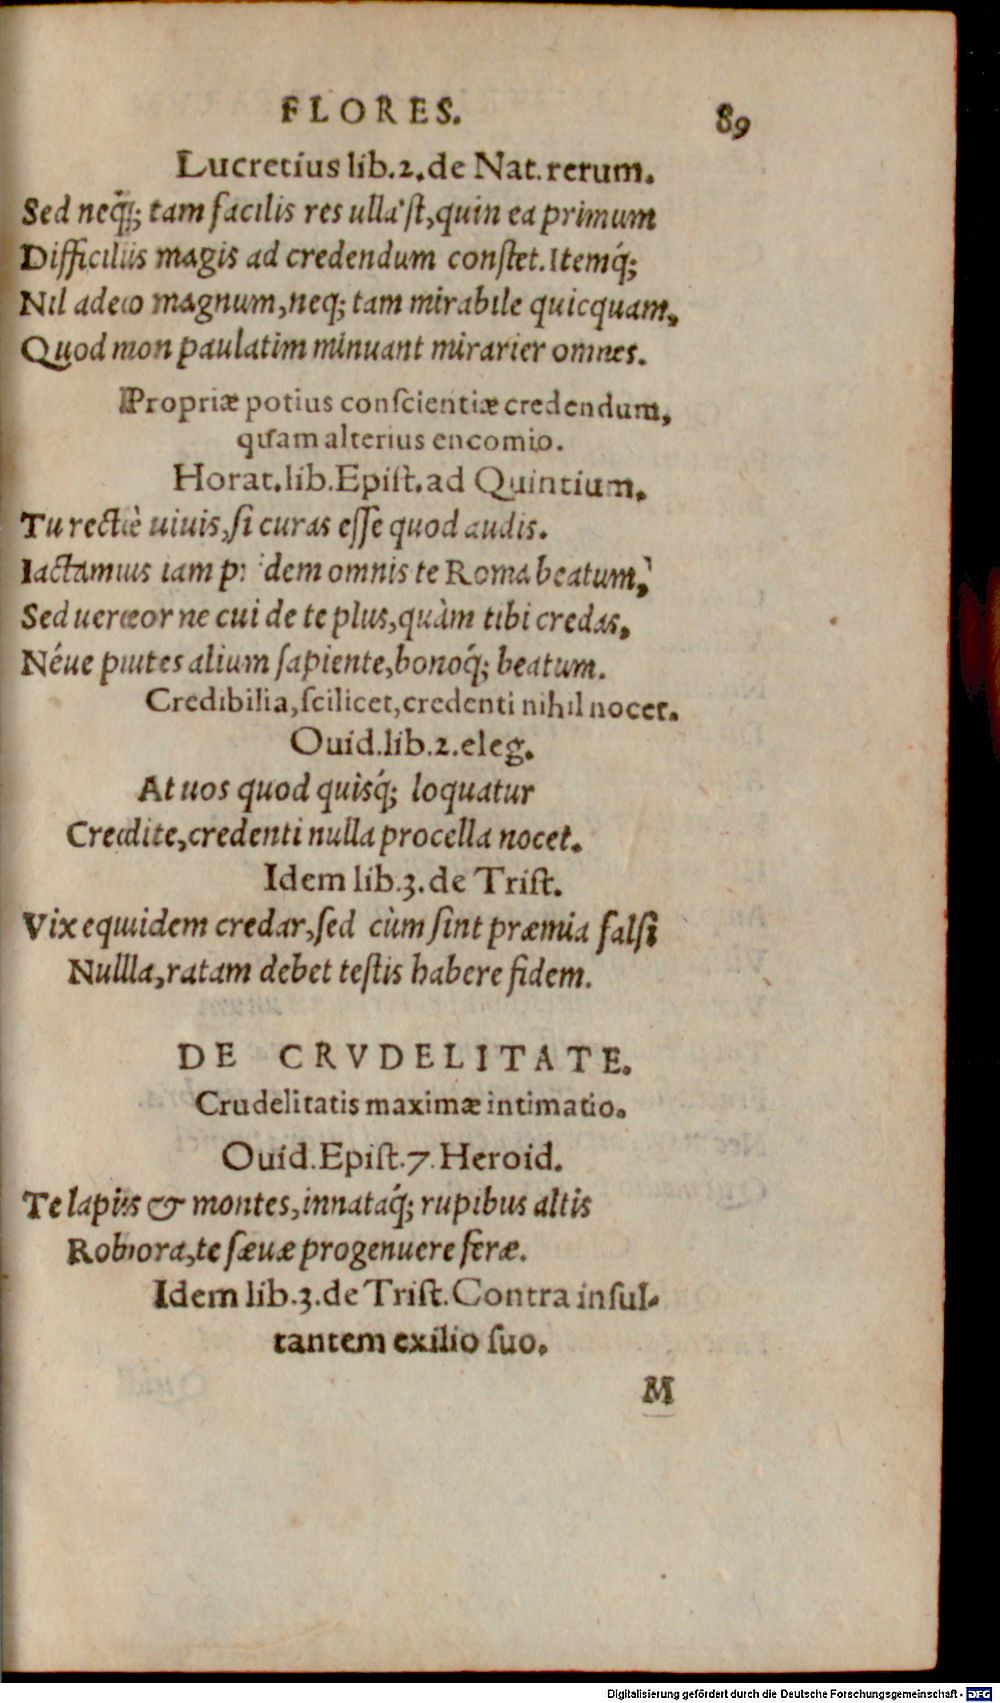 FLORES. 89
Lucretius lib.2.de Nat.rerum.
Sed neq́; tam facilis res ulla'ſt,quin ea primum
Difficilis magis ad credendum conſtet.Itemq́;
Nil adeo magnum,neq; tam mirabile quicquam,
Quod non paulatim minuant mirarier omnes.
Propriæ potius conſcientiæ credendum,
quam alterius encomio.
Horat.lib.Epiſt.ad Quintium.
Tu rectè uiuis,ſi curas eſſe quod audis.
Iactamus iam pridem omnis te Roma beatum,
Sed uereor ne cui de te plus,quàm tibi credas,
Néue putes alium ſapiente,bonoq́; beatum.
Credibilia,ſcilicet,credenti nihil nocet.
Ouid.lib.2.eleg.
At uos quod quisq́; loquatur
Credite,credenti nulla procella nocet.
Idem lib.3.de Triſt.
Vix equidem credar,ſed cùm ſint præmia falſi
Nulla,ratam debet teſtis habere fidem.
DE CRVDELITATE.
Crudelitatis maximæ intimatio.
Ouid.Epiſt.7.Heroid.
Te lapis & montes,innataq́; rupibus altis
Robora,te ſæuæ progenuere feræ.
Idem lib.3.de Triſt.Contra inſul-
tantem exilio ſuo.
M
Digitalisierung gefördert durch die Deutsche Forschungsgemeinschaft - DFG